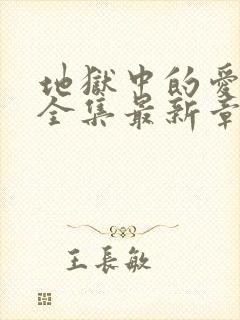 地獄中的愛
全集最新章
王長敏